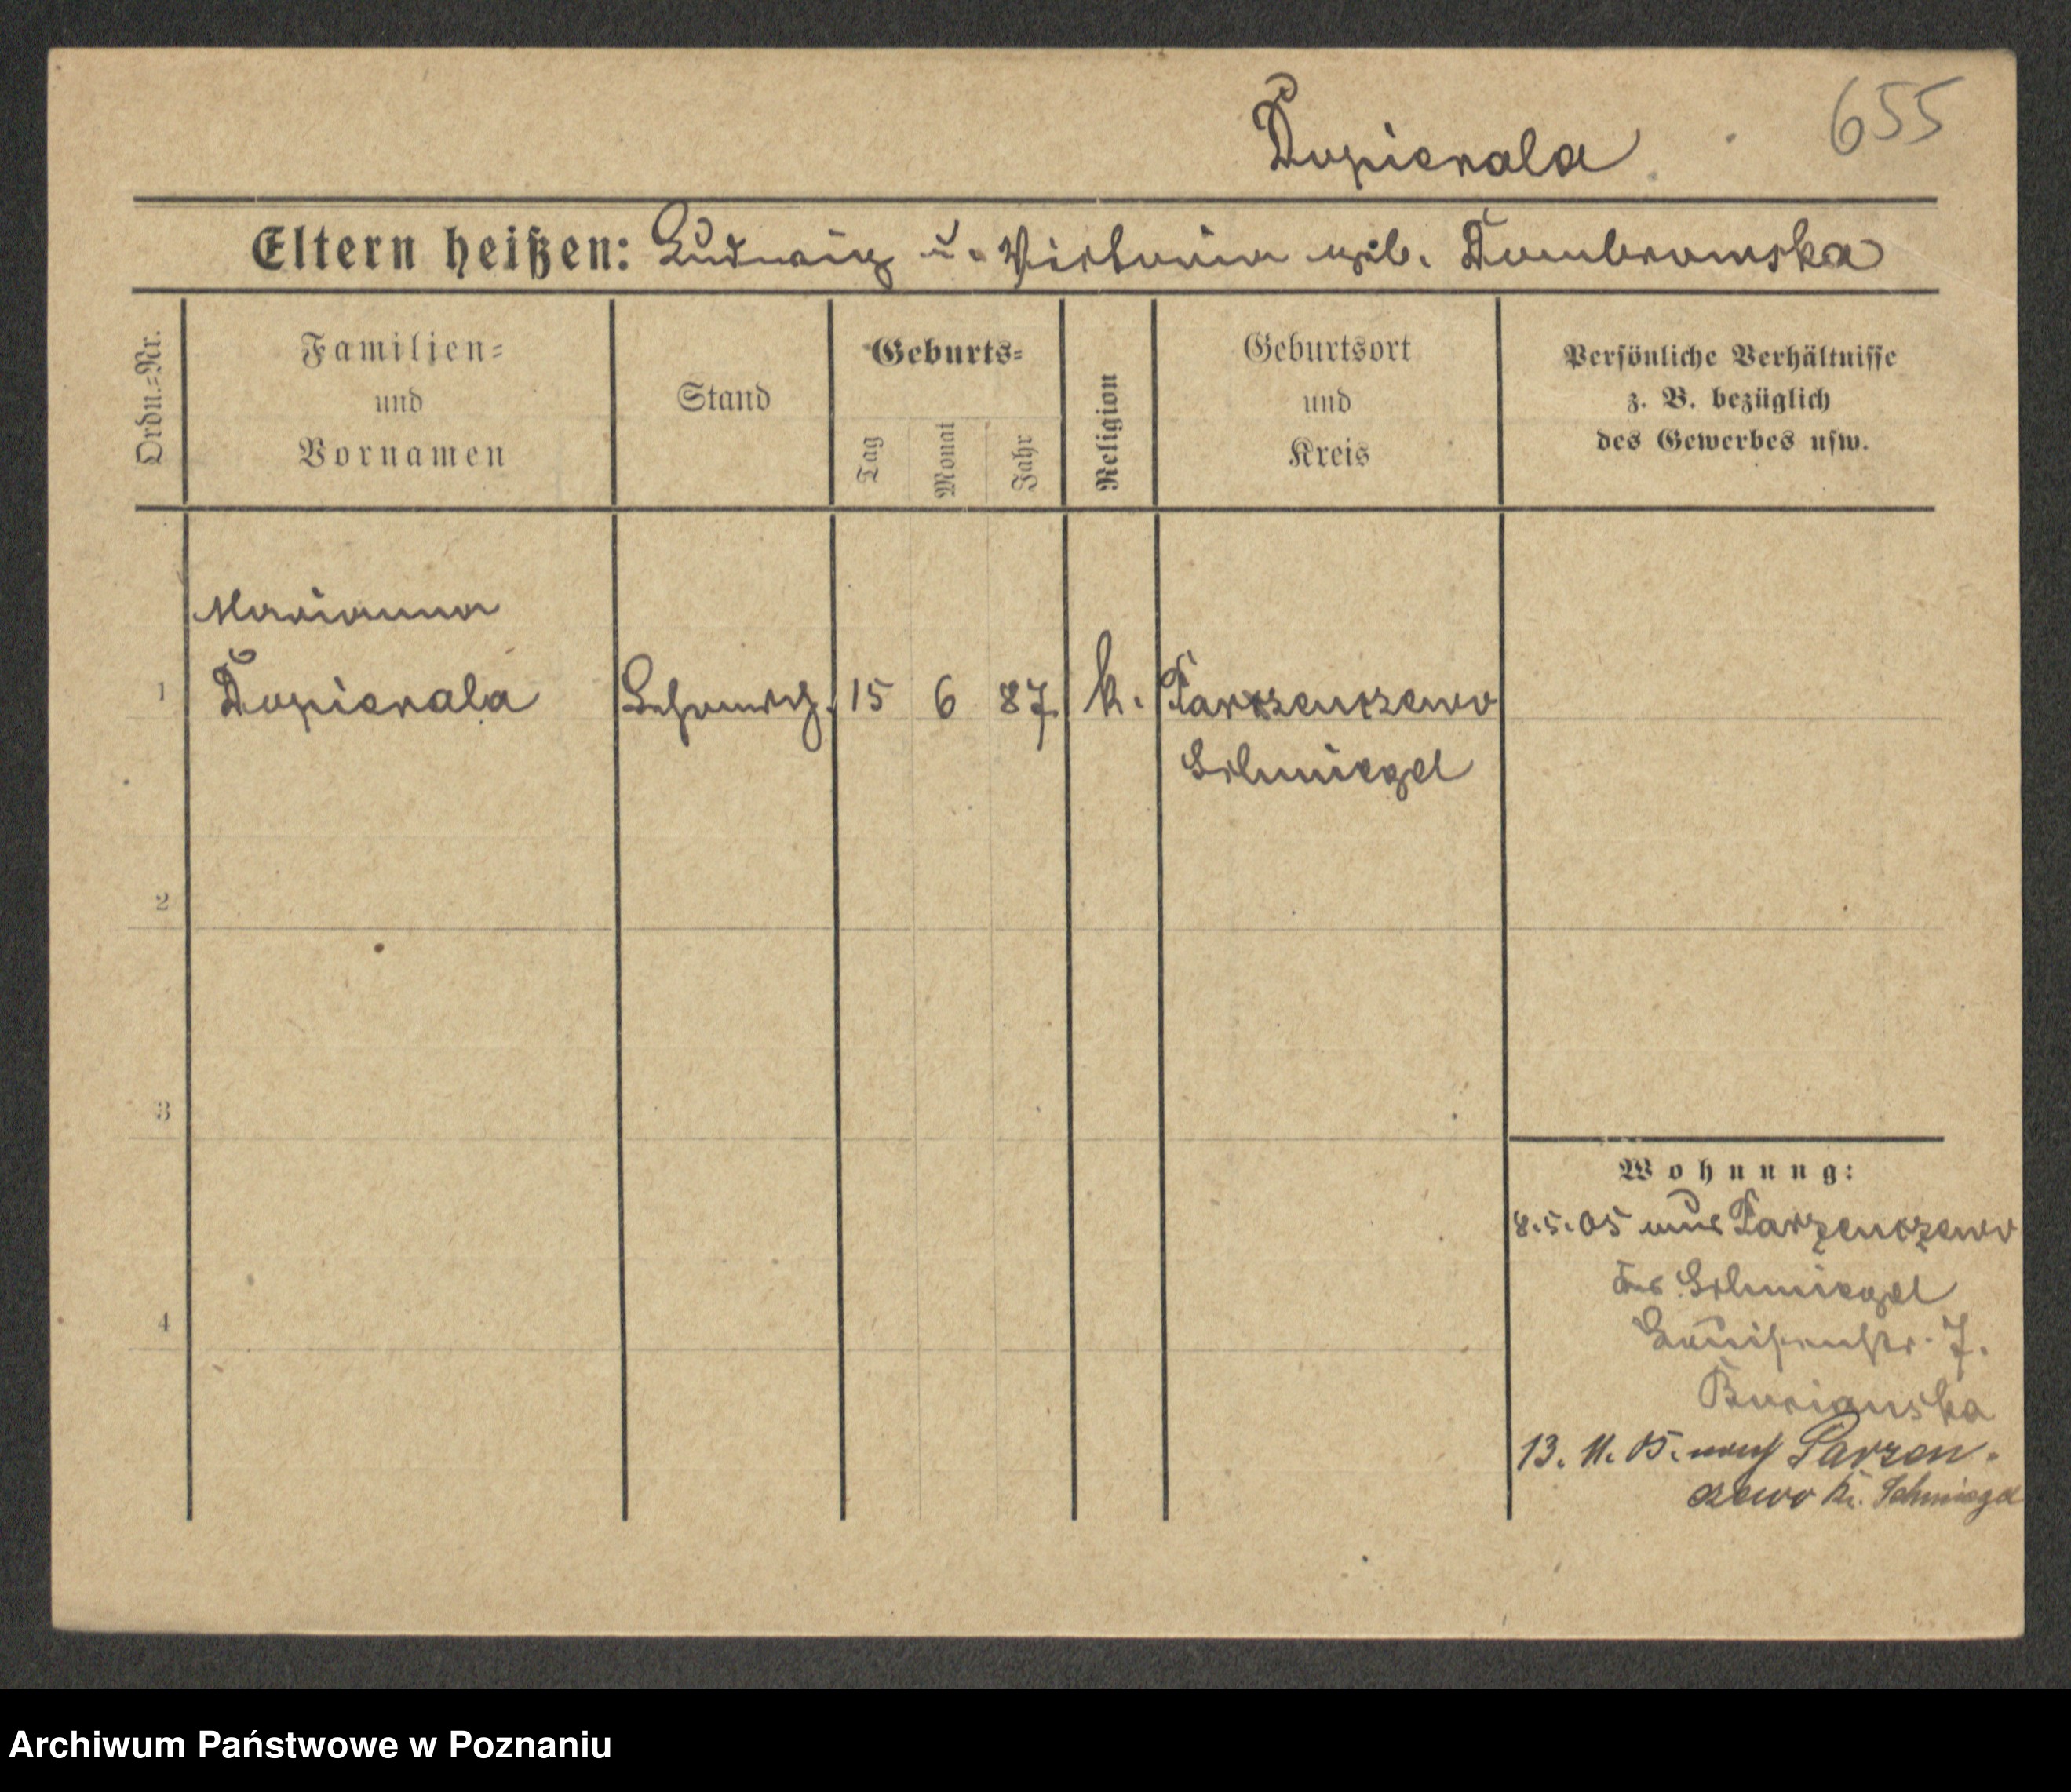 655
Dopierala
Eltern heißen: Ludwig u. Victoria geb. Dombrowska
Ordn.=Nr.
Familien=
und
Vornamen
Stand
Geburts=
Tag
Monat
Jahr
Religion
Geburtsort
und
Kreis
Persönliche Verhältnisse
z. B. bezüglich
des Gewerbes usw.
Marianna
1 Dopierala 15 6 87 k. Parzenczewo
Schmiegel
2
3
4
Wohnung:
8.5.05 aus Parzenczewo
Schmiegel
Louisenstr. 7.
13. 11. 05. nach Parzen-
czewo Kr. Schmiegel
Archiwum Państwowe w Poznaniu